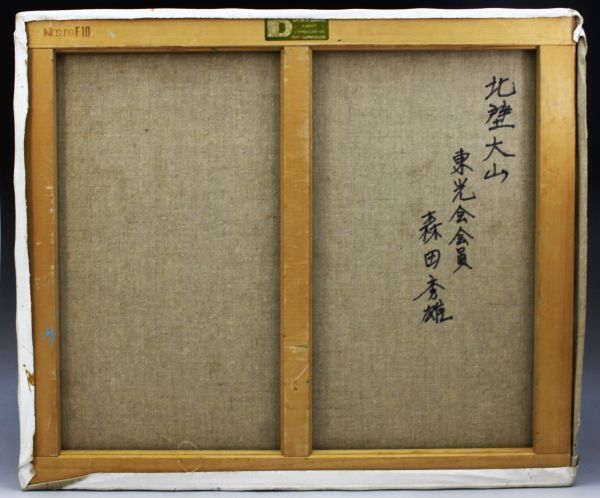 北壁大山
東光会会員
森田秀雄
F10